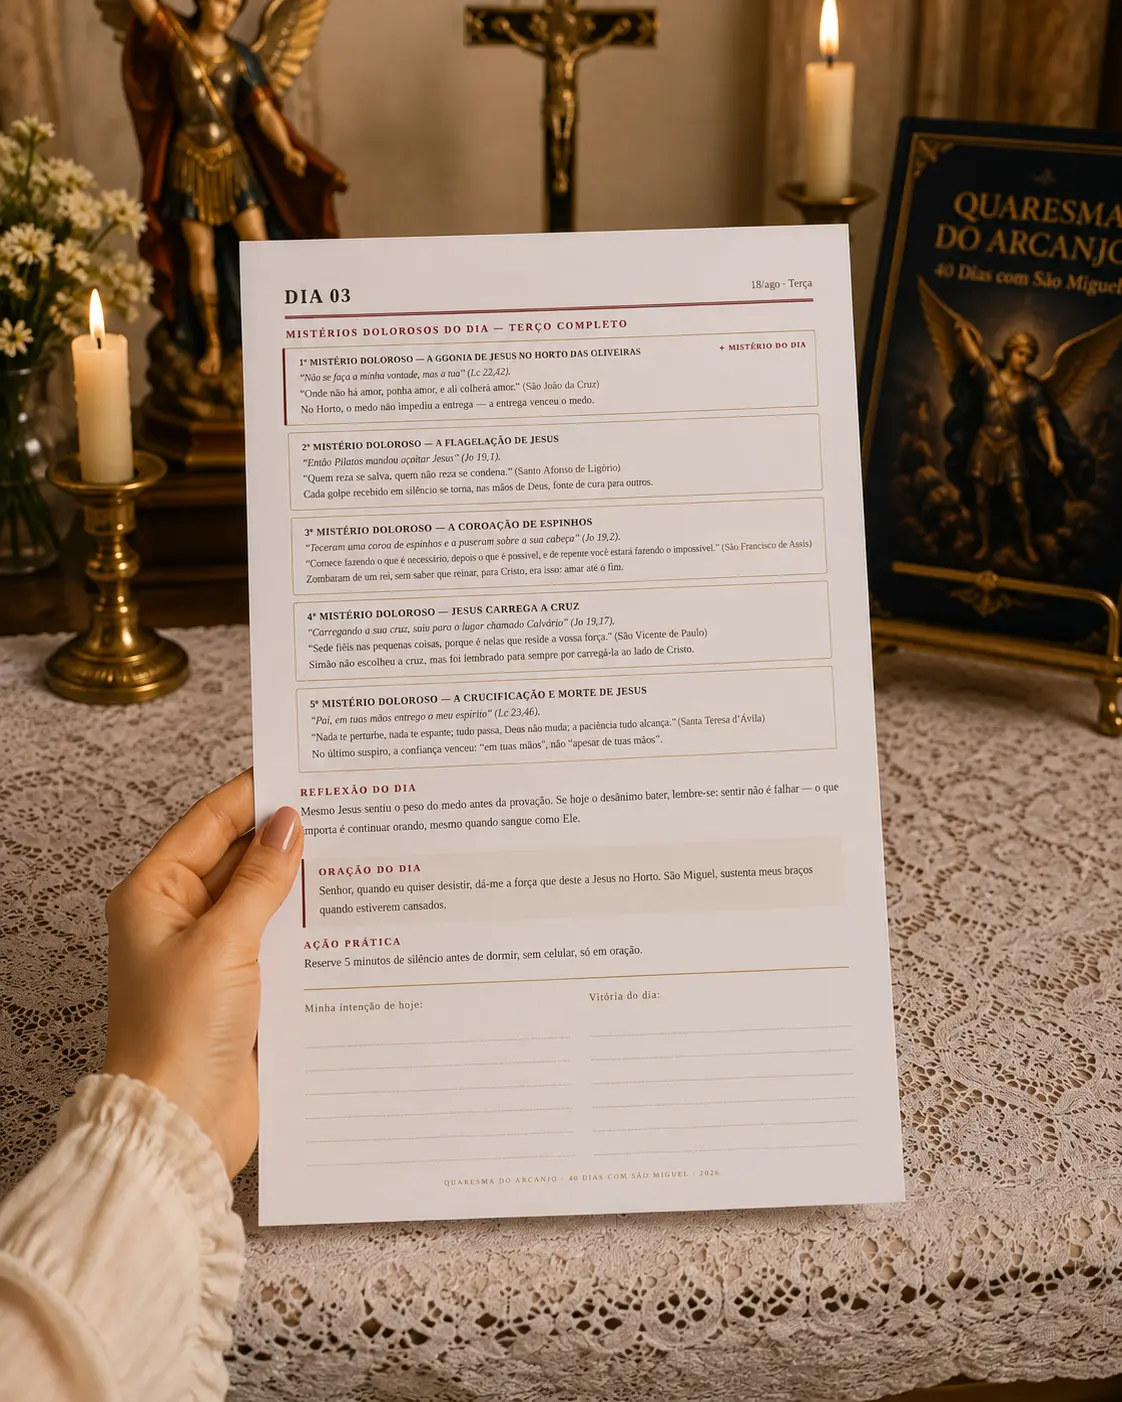 QUARESMA
DO ARCANJO
40 Dias com São Miguel
DIA 03
18/ago · Terça
MISTÉRIOS DOLOROSOS DO DIA — TERÇO COMPLETO
1º MISTÉRIO DOLOROSO — A GGONIA DE JESUS NO HORTO DAS OLIVEIRAS
+ MISTÉRIO DO DIA
"Não se faça a minha vontade, mas a tua" (Lc 22,42).
"Onde não há amor, ponha amor, e ali colherá amor." (São João da Cruz)
No Horto, o medo não impediu a entrega — a entrega venceu o medo.
2º MISTÉRIO DOLOROSO — A FLAGELAÇÃO DE JESUS
"Então Pilatos mandou açoitar Jesus" (Jo 19,1).
"Quem reza se salva, quem não reza se condena." (Santo Afonso de Ligório)
Cada golpe recebido em silêncio se torna, nas mãos de Deus, fonte de cura para outros.
3º MISTÉRIO DOLOROSO — A COROAÇÃO DE ESPINHOS
"Teceram uma coroa de espinhos e a puseram sobre a sua cabeça" (Jo 19,2).
"Comece fazendo o que é necessário, depois o que é possível, e de repente você estará fazendo o impossível." (São Francisco de Assis)
Zombaram de um rei, sem saber que reinar, para Cristo, era isso: amar até o fim.
4º MISTÉRIO DOLOROSO — JESUS CARREGA A CRUZ
"Carregando a sua cruz, saiu para o lugar chamado Calvário" (Jo 19,17).
"Sede fiéis nas pequenas coisas, porque é nelas que reside a vossa força." (São Vicente de Paulo)
Simão não escolheu a cruz, mas foi lembrado para sempre por carregá-la ao lado de Cristo.
5º MISTÉRIO DOLOROSO — A CRUCIFICAÇÃO E MORTE DE JESUS
"Pai, em tuas mãos entrego o meu espírito" (Lc 23,46).
"Nada te perturbe, nada te espante; tudo passa, Deus não muda; a paciência tudo alcança." (Santa Teresa d'Ávila)
No último suspiro, a confiança venceu: "em tuas mãos", não "apesar de tuas mãos".
REFLEXÃO DO DIA
Mesmo Jesus sentiu o peso do medo antes da provação. Se hoje o desânimo bater, lembre-se: sentir não é falhar — o que
importa é continuar orando, mesmo quando sangue como Ele.
ORAÇÃO DO DIA
Senhor, quando eu quiser desistir, dá-me a força que deste a Jesus no Horto. São Miguel, sustenta meus braços
quando estiverem cansados.
AÇÃO PRÁTICA
Reserve 5 minutos de silêncio antes de dormir, sem celular, só em oração.
Minha intenção de hoje:
Vitória do dia:
QUARESMA DO ARCANJO · 40 DIAS COM SÃO MIGUEL · 2026